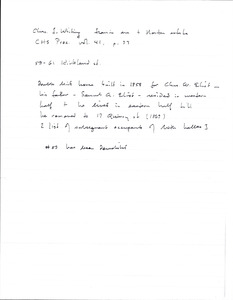 Chas. S. Whiting Francis Ave + Norton estate
CHS Proc. vol. 41, p. 37
59-61 Kirkland st.
Double brick house built in 1858 for Chas. W. Eliot -
his father - Samuel A. Eliot - resided in western
half & he lived in eastern half till
he removed to 17 Quincy st (1869)
[ list of subsequent occupants of both halves ]
#59 has been demolished